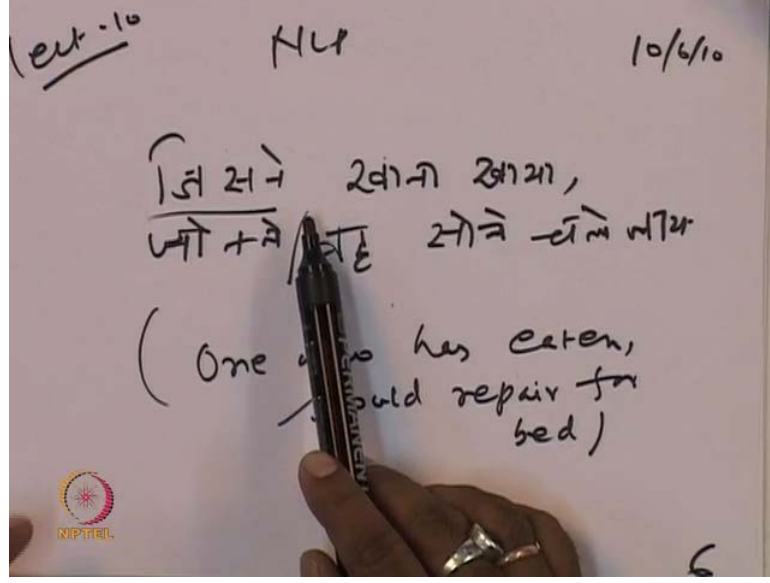 Lect-10 NLP 10/6/10
जिसने खाना खाया,
जो + ने वह सोने चले जाय
(One who has eaten,
should repair for
bed)
NPTEL
PERMANENT
6